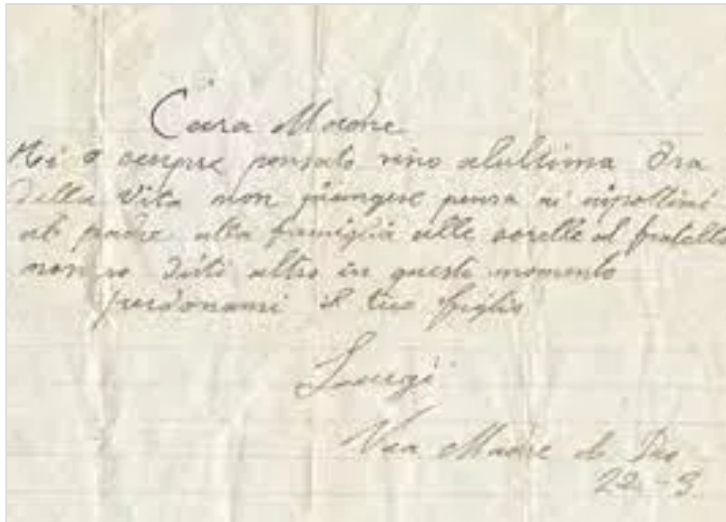 Cara Madre
Ti o sempre pensato vino alultima Ora
della Vita non piangere pensa ai nipottini
al padre alla famiglia alle sorelle al fratello
non so dirti altro in questo momento
perdonami il tuo figlio
Luigi
Via Madre di Dio
22-9